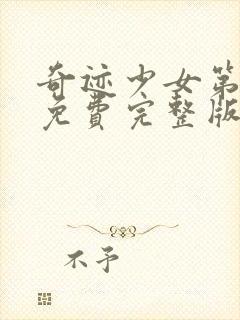 奇迹少女第
免费完整版
不予